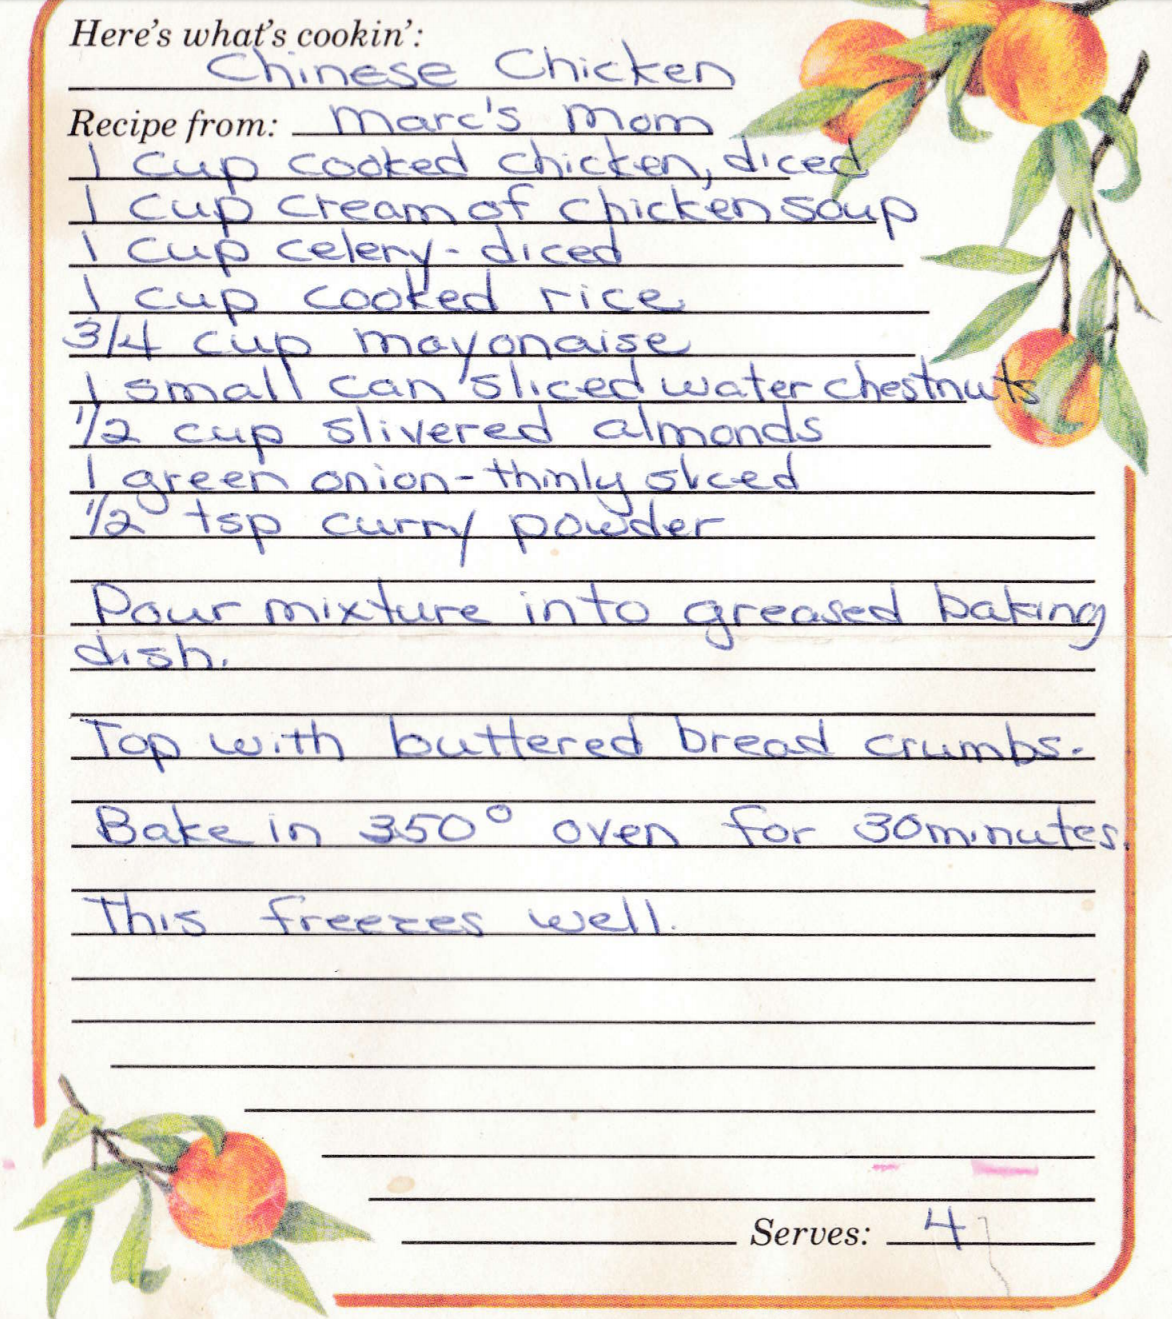 Here's what's cookin':
Chinese Chicken
Recipe from: Marc's Mom
1 cup cooked chicken, diced
1 cup cream of chicken soup
1 cup celery - diced
1 cup cooked rice
3/4 cup mayonaise
1 small can sliced water chestnuts
1/2 cup slivered almonds
1 green onion - thinly sliced
1/2 tsp curry powder
Pour mixture into greased baking
dish.
Top with buttered bread crumbs.
Bake in 350° oven for 30 minutes.
This freezes well.
Serves: 4